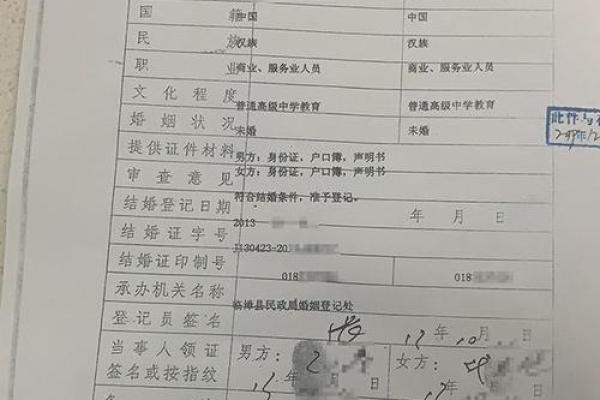 国 籍 中国 中国
民 族 汉族 汉族
职 业 商业、服务业人员 商业、服务业人员
文 化 程 度 普通高级中学教育 普通高级中学教育
婚 姻 状 况 未婚 未婚
此件与
提供证件材料 男方：身份证，户口簿，声明书
女方：身份证，户口簿，声明书
审 查 意 见 符合结婚条件，准予登记。
结婚登记日期 2013 年 月 日
结婚证字号 J130423-20
结婚证印制号 018 018
承办机关名称 临漳县民政局婚姻登记处
登记员签名 13 年 10 月 日
当事人领证 男方： 女方：
签名或按指纹 年 月 日 年 月 日